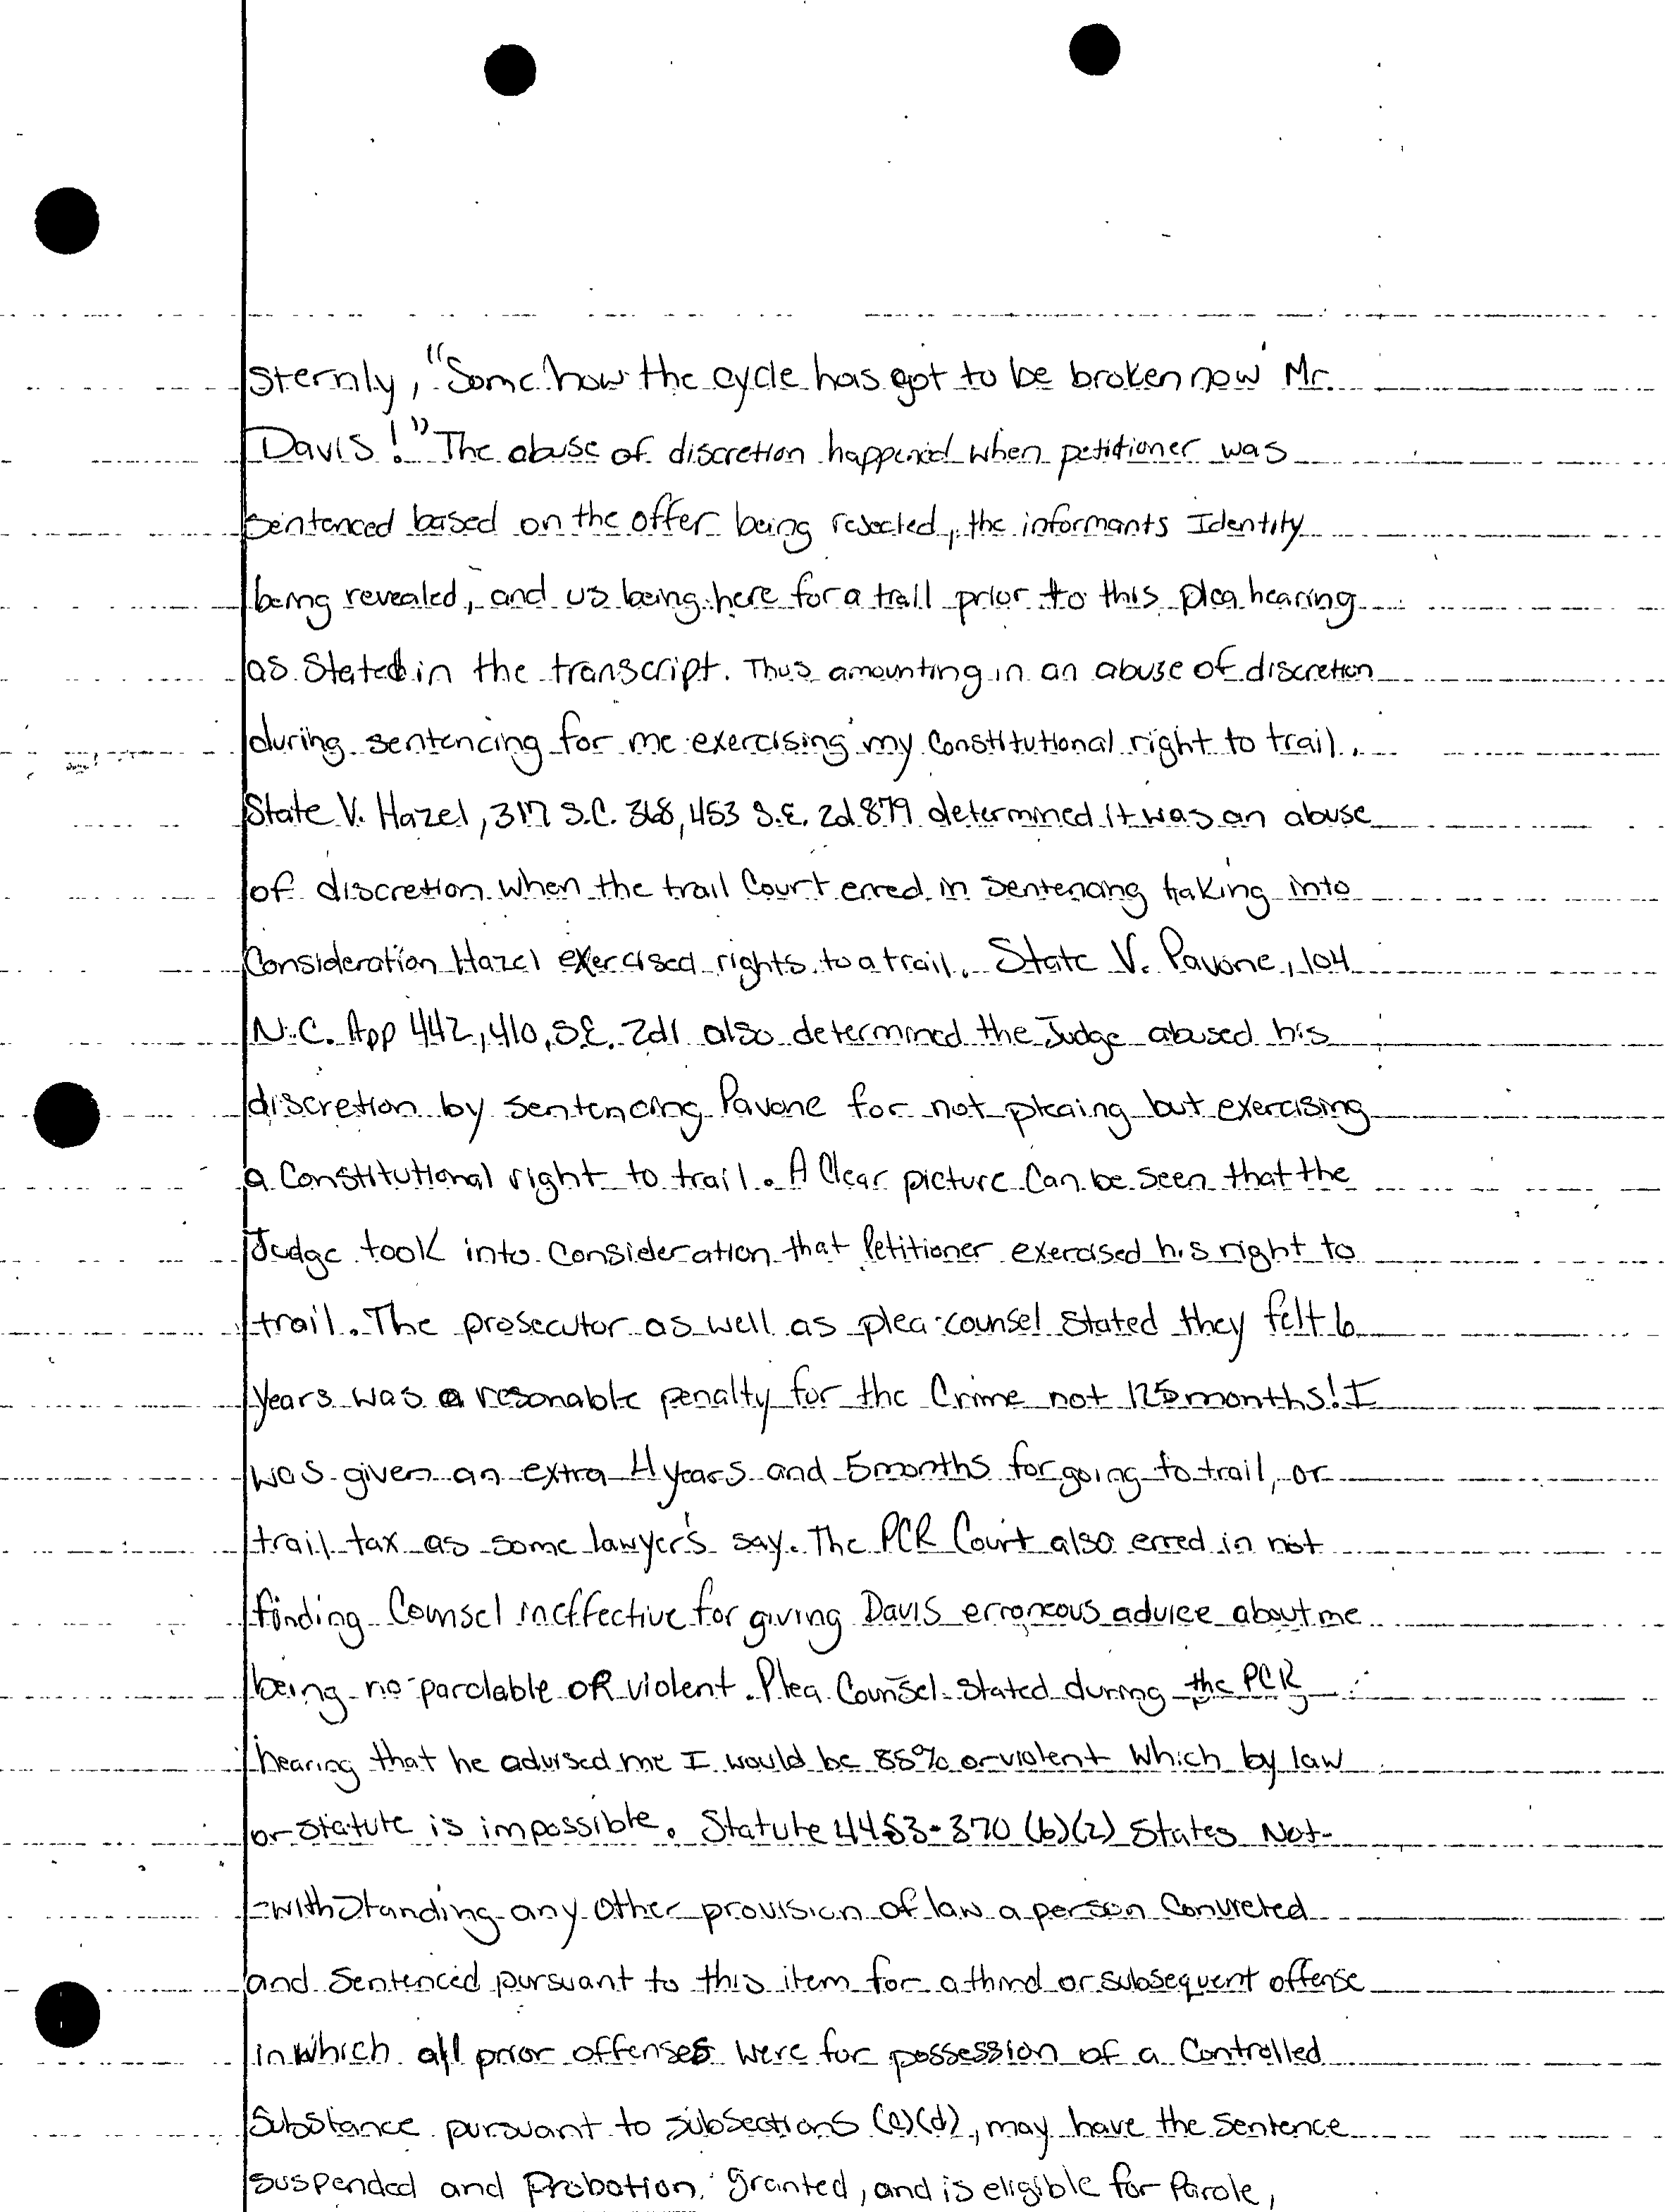 Sternly, "Some how the cycle has got to be broken now Mr.
Davis!" The abuse of discretion happened when petitioner was
sentenced based on the offer being rejected, the informants Identity
being revealed, and us being here for a trail prior to this plea hearing
as Stated in the transcript. Thus amounting in an abuse of discretion
during sentencing for me exercising my Constitutional right to trail.
State V. Hazel, 317 S.C. 368, 453 S.E. 2d 879 determined it was an abuse
of discretion when the trail Court erred in sentencing taking into
Consideration Hazel exercised rights to a trail. State V. Pavone, 104
N.C. App 442, 410, S.E. 2d 1 also determined the Judge abused his
discretion by sentencing Pavone for not pleaing but exercising
a Constitutional right to trail. A Clear picture Can be seen that the
Judge took into Consideration that Petitioner exercised his right to
trail. The prosecutor as well as plea counsel stated they felt 6
years was a resonable penalty for the Crime not 125 months! I
was given an extra 4 years and 5 months for going to trail, or
trail tax as some lawyer's say. The PCR Court also erred in not
finding Counsel ineffective for giving Davis erroneous advice about me
being no parolable OR violent. Plea Counsel stated during the PCR
hearing that he advised me I would be 85% or violent Which by law
or statute is impossible. Statute 44-53-370 (b)(2) States Not-
-withstanding any other provision of law a person Convicted
and Sentenced pursuant to this item for a third or subsequent offense
in which all prior offenses were for possession of a Controlled
Substance pursuant to subsections (c)(d), may have the sentence
suspended and Probation granted, and is eligible for Parole,